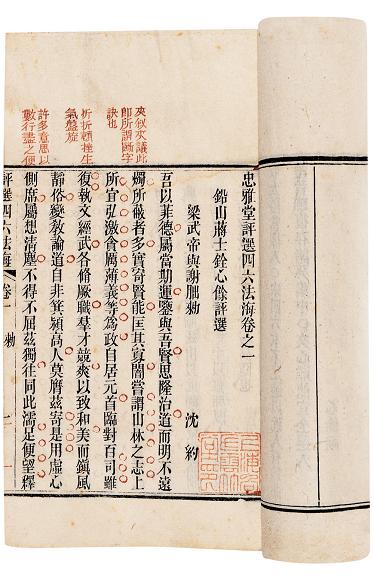 夾叙夾議此
即所謂斷字
訣也
折折頓挫生
氣盤旋
許多意思以
數行盡之便
忠雅堂評選四六法海卷之一
鉛山蔣士銓心餘評選
梁武帝與謝朏勅 沈約
吾以菲德屬當期運鑒與吾賢思隆治道而明不遠
燭所蔽者多實寄賢能匡其寡闇嘗謂山林之志上
所宜弘激貪厲薄義等為政自居元首臨對百司雖
復執文經武各脩厥職羣才競爽以致和美而鎮風
靜俗變教論道自非箕潁高人莫膺茲寄是用虛心
側席屬想清塵不得不屈茲獨往同此濡足便望釋
評選四六法海 卷一 勅